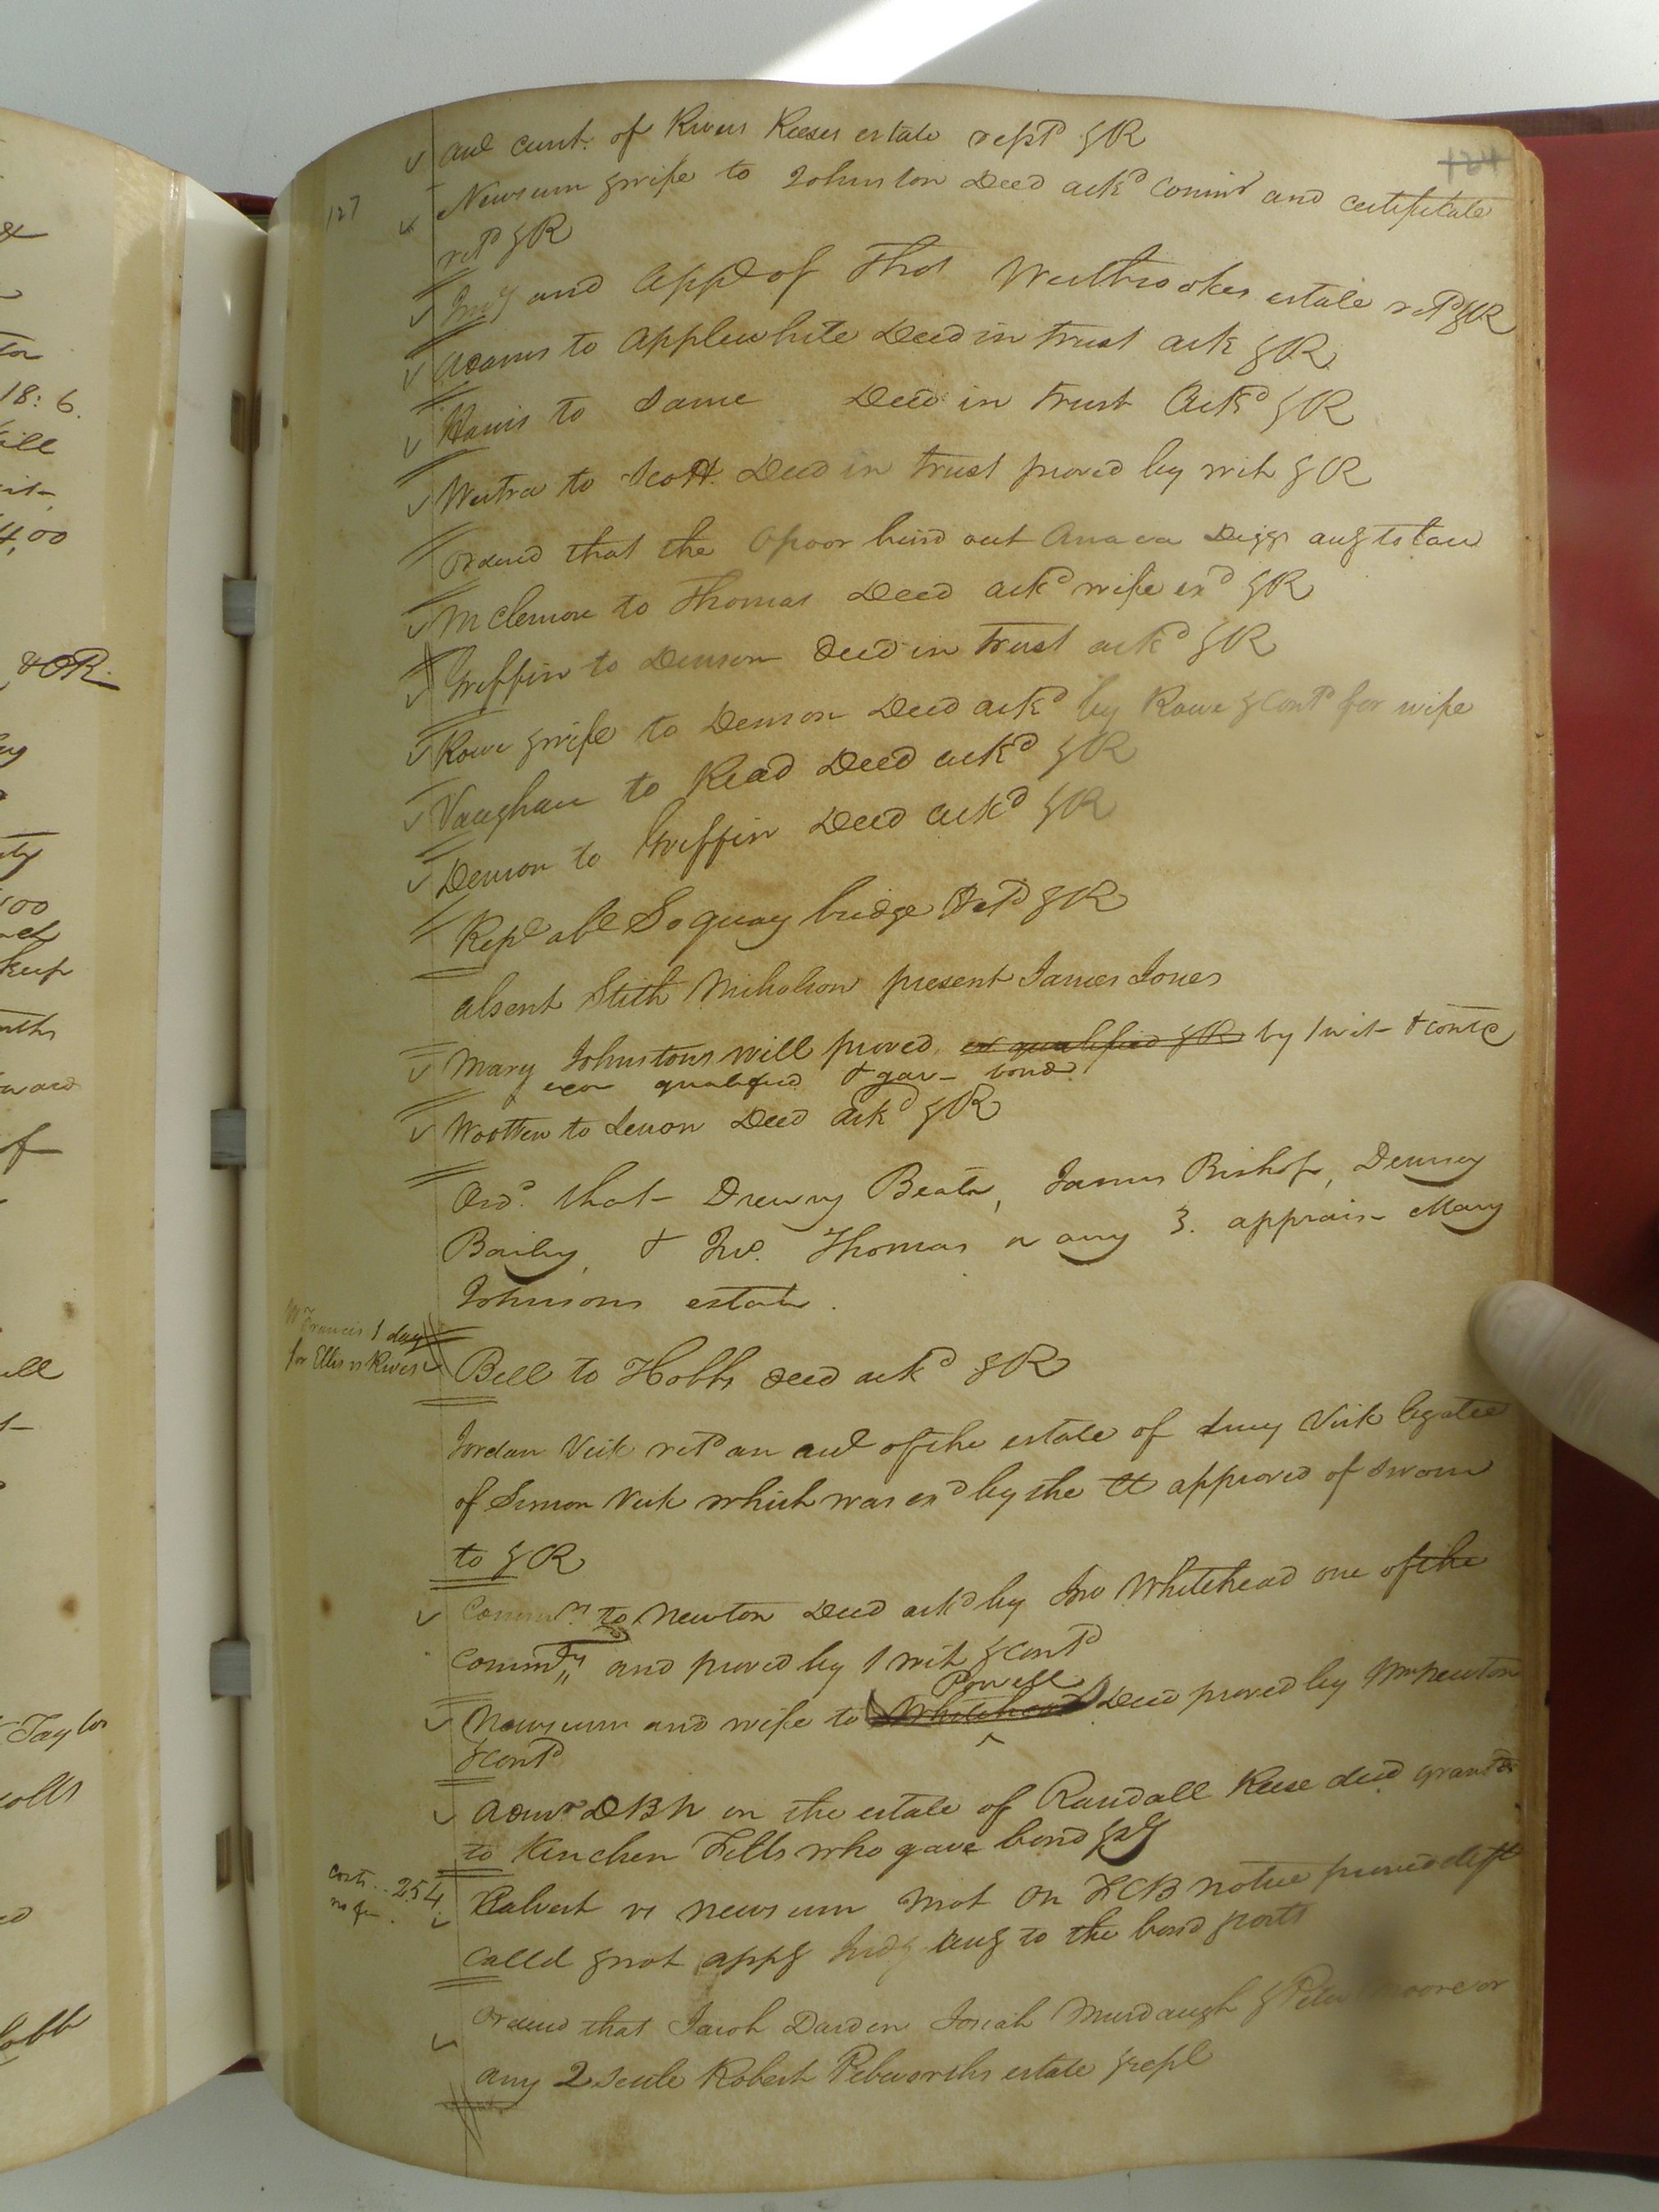 124
127
aud Curt. of Rives Reeses estate rept &R
Newsum & wife to Johnston Deed ackd Commn and certificate
retd &R
Invy and Appt of Thos Westbrookes estate retd &R
Adams to Applewhite Deed in trust ack &R
Harris to Same Deed in trust Ackd &R
Westra to Scott Deed in trust proved by wit &R
Ordered that the Opoor bind out Diggs accg to law
McLemore to Thomas Deed ackd wife exd &R
Griffin to Denson deed in trust ackd &R
Rowe & wife to Denson Deed ackd by Rowe & contd for wife
Vaughan to Read Deed ackd &R
Denson to Griffin Deed ackd &R
Rept abt Soquay bridge Retd &R
absent Stith Nicholson present James Jones
Mary Johnstons will proved, ex qualified &R by 1 wit & contd
exor qualified & gav- bond
Wootten to Lenon Deed ackd &R
Ord. that Drewry Beale, James Bishop, Dempsey
Bailey, & Jno. Thomas or any 3. appraise Mary
Johnsons estate.
Wm Francis 1 day
for Ellis vs Rives
Bell to Hobbs deed ackd &R
Jordan Vick retd an aud of the estate of Lucy Vick legatee
of Simon Vick which was exd by the Ct approved of sworn
to &R
Commrs to Newton Deed ackd by Jno Whitehead one of the
Commrs and proved by 1 wit & contd
Powell
Newsum and wife to Whitehead Deed proved by Wm Newton
& contd
Admr DBN on the estate of Randall Reese decd granted
to Kinchen Fells who gave bond &c
Costs .. 2.54
no fee.
Calvert vs Newsum Mot on FCB notice proved deft
called & not appg Judgt accg to the bond & costs
Ordered that Jacob Darden Josiah Murdaugh & Peter Moore or
any 2 settle Robert Pebworths estate & rept